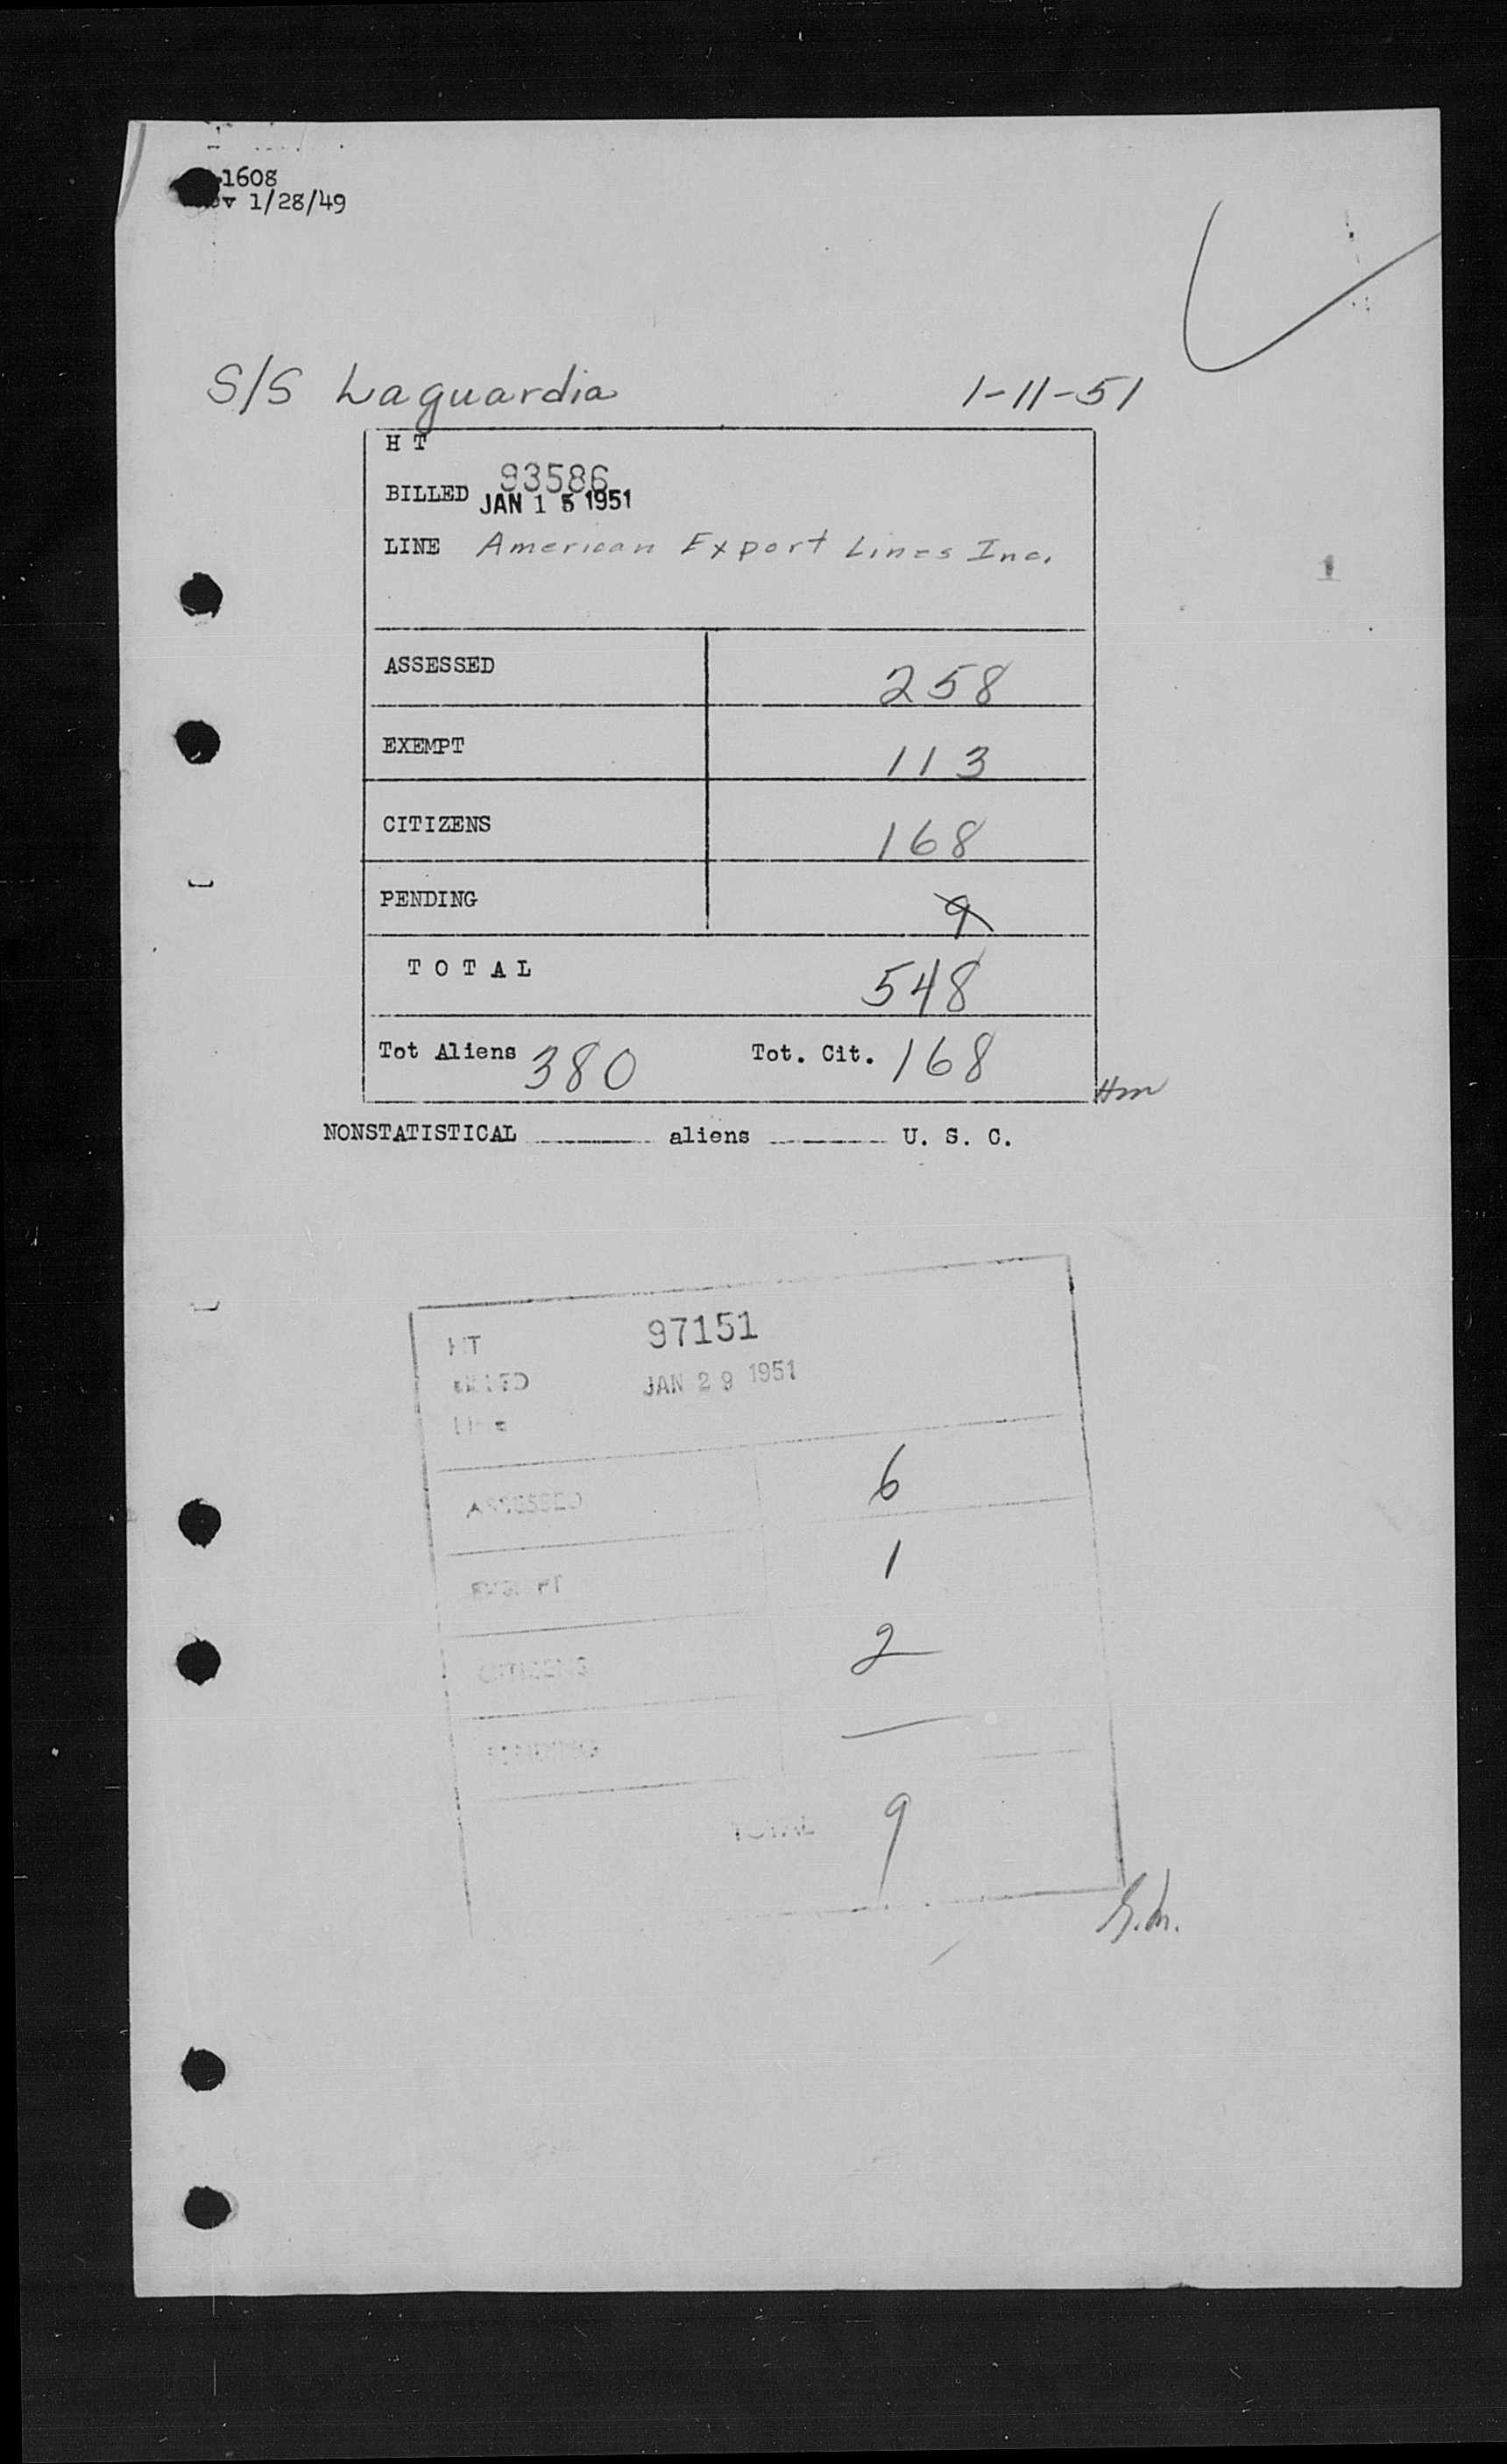 1608
v 1/28/49
S/S Laguardia 1-11-51
H T
93586
BILLED JAN 15 1951
LINE American Export Lines Inc.
1
ASSESSED 258
EXEMPT 113
CITIZENS 168
PENDING 9
TOTAL 548
Tot Aliens 380 Tot. Cit. 168
Hm
NONSTATISTICAL ______ aliens ______ U. S. C.
HT 97151
BILLED JAN 29 1951
Line
ASSESSED 6
EXEMPT 1
CITIZENS 2
PENDING —
TOTAL 9